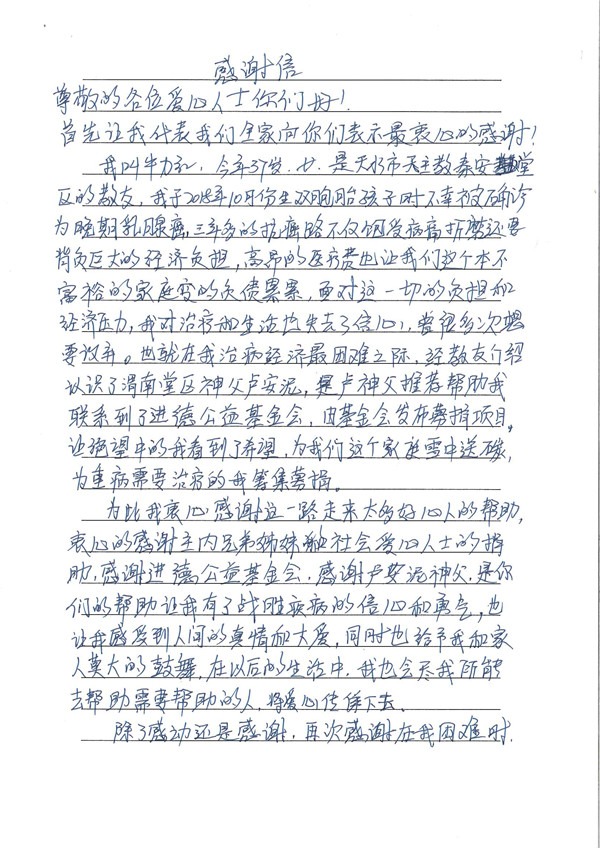 感谢信
尊敬的各位爱心人士你们好!
首先让我代表我们全家向你们表示最衷心的感谢!
我叫牛力红,今年37岁,女,是天水市天主教秦安堂
区的教友,我于2018年10月份生双胞胎孩子时不幸被确诊
为晚期乳腺癌,三年多的抗癌路不仅饱受病痛折磨还要
背负巨大的经济负担,高昂的医疗费也让我们这个本不
富裕的家庭变的负债累累,面对这一切的负担和
经济压力,我对治疗和生活也失去了信心,曾很多次想
要放弃。也就在我治病经济最困难之际,经教友介绍
认识了渭南堂区神父卢安泥,是卢神父推荐帮助我
联系到了进德公益基金会,由基金会发布募捐项目,
让绝望中的我看到了希望,为我们这个家庭雪中送碳,
为重病需要治疗的我筹集募捐。
为此我衷心感谢这一路走来太多好心人的帮助,
衷心的感谢主内兄弟姊妹和社会爱心人士的捐
助,感谢进德公益基金会,感谢卢安泥神父,是你
们的帮助让我有了战胜疾病的信心和勇气,也
让我感受到人间的真情和大爱,同时也给予我和家
人莫大的鼓舞,在以后的生活中,我也会尽我所能
去帮助需要帮助的人,将爱心传递下去.
除了感动还是感谢,再次感谢在我困难时.